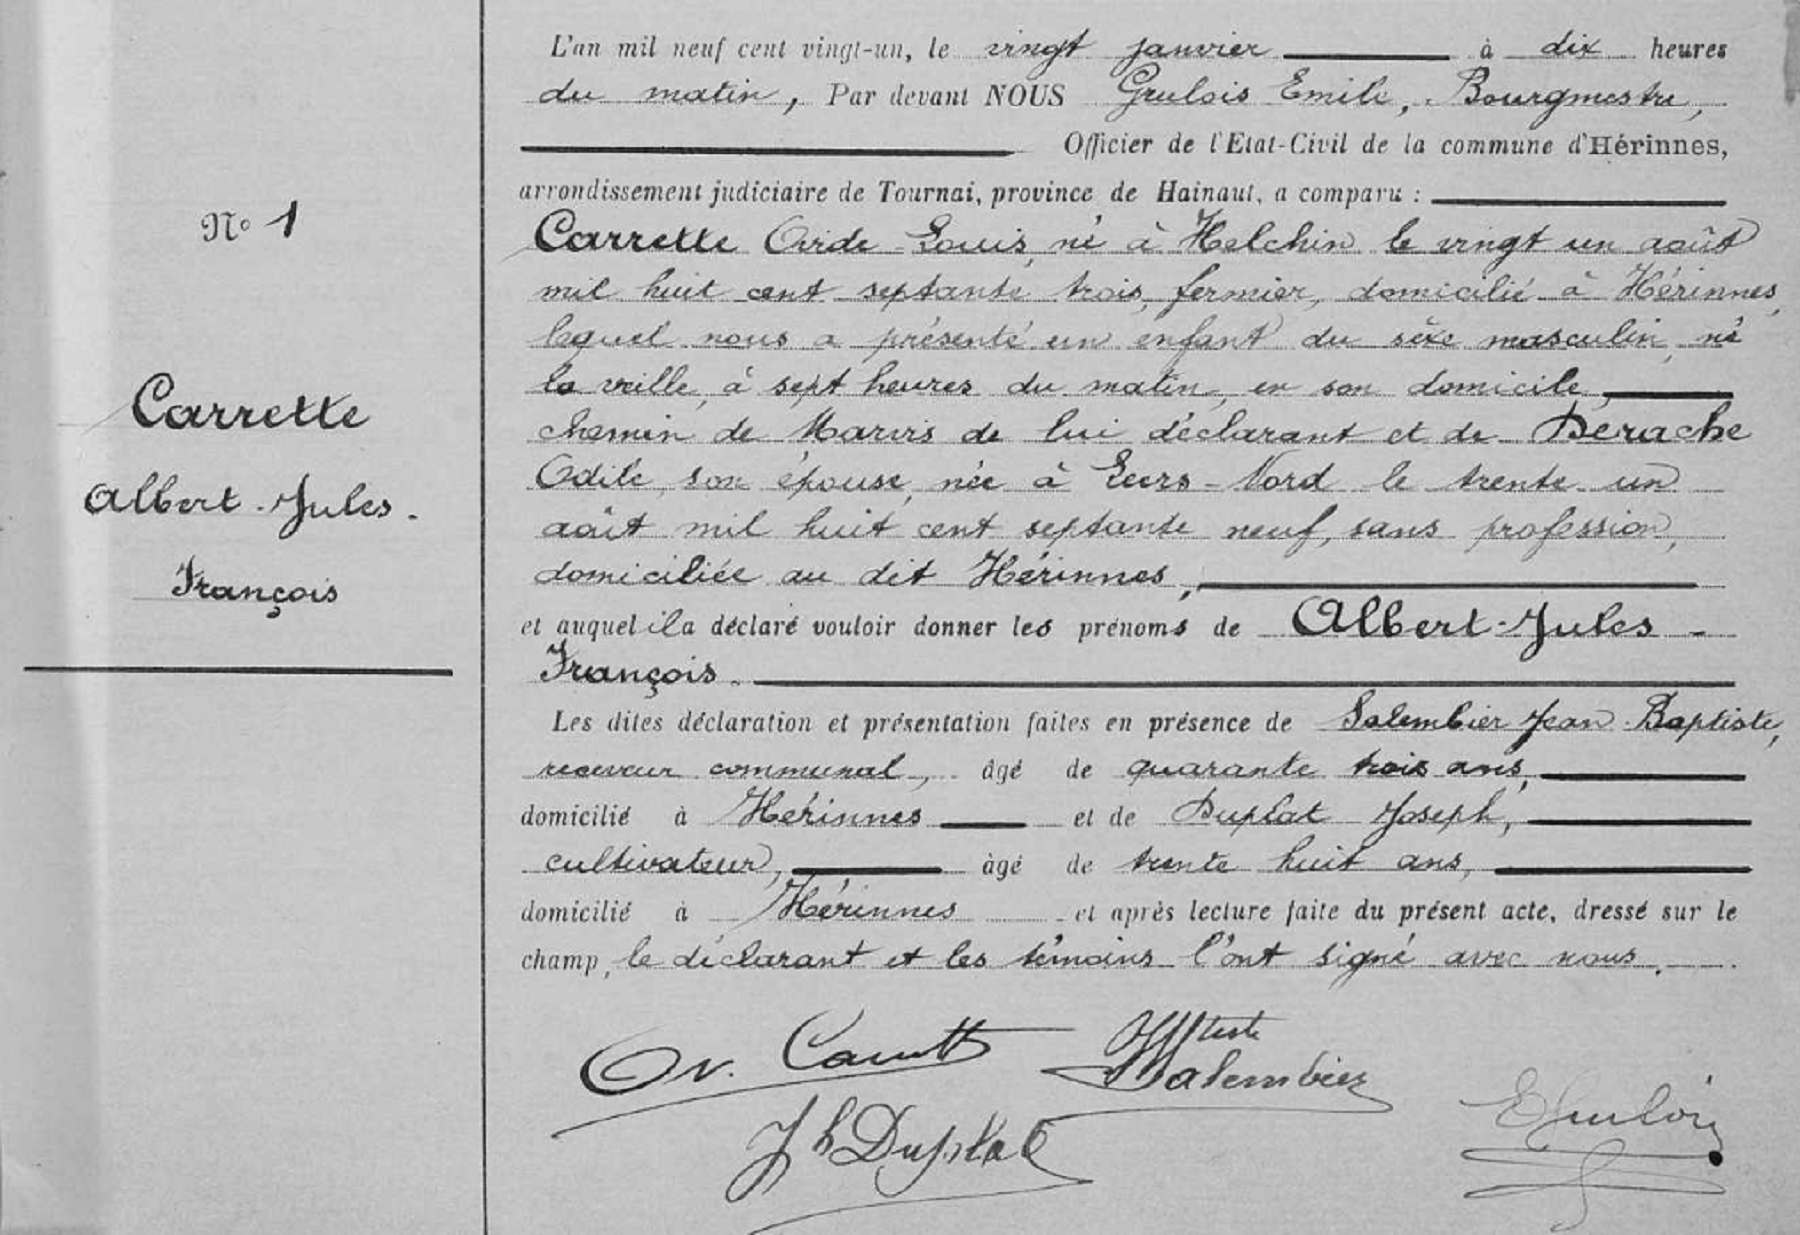 N° 1
Carrette
Albert-Jules-
François
L'an mil neuf cent vingt-un, le vingt janvier à dix heures
du matin, Par devant NOUS Grulois Emile, Bourgmestre,
Officier de l'Etat-Civil de la commune d'Hérinnes,
arrondissement judiciaire de Tournai, province de Hainaut, a comparu :
Carrette Ovide-Louis, né à Helchin le vingt un août
mil huit cent septante trois, fermier, domicilié à Hérinnes,
lequel nous a présenté un enfant du sèxe masculin, né
la veille, à sept heures du matin, en son domicile,
chemin de Marvis de lui déclarant et de Derache
Odile, son épouse, née à Leers-Nord le trente un
août mil huit cent septante neuf, sans profession,
domiciliée au dit Hérinnes,
et auquel il a déclaré vouloir donner les prénoms de Albert-Jules-
François.
Les dites déclaration et présentation faites en présence de Salembier Jean-Baptiste,
receveur communal, âgé de quarante trois ans,
domicilié à Hérinnes et de Duplat Joseph,
cultivateur, âgé de trente huit ans,
domicilié à Hérinnes et après lecture faite du présent acte, dressé sur le
champ, le déclarant et les témoins l'ont signé avec nous.
Ov. Carrette
Salembier
Jh Duplat
E Grulois